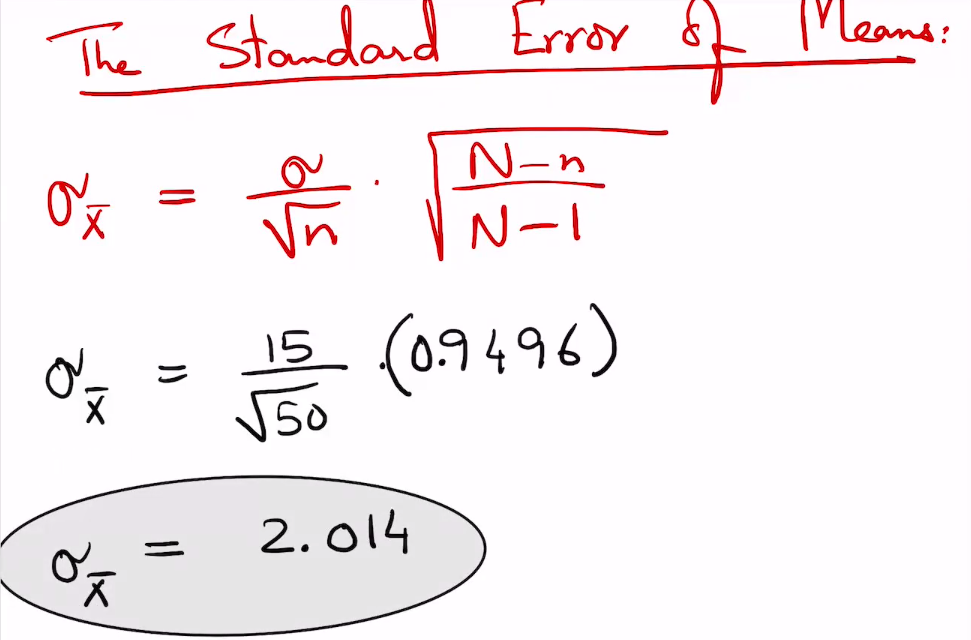 The Standard Error of Means:
σx̅ = σ/√n · √(N-n/N-1)
σx̅ = 15/√50 · (0.9496)
σx̅ = 2.014